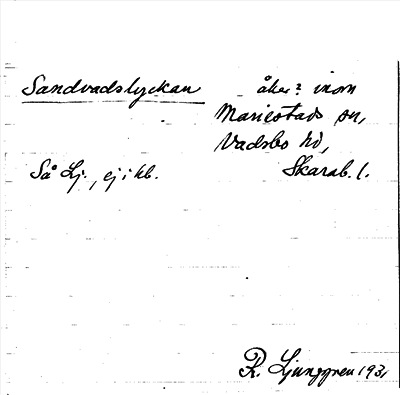 Sandvadslyckan
åker? inom
Mariestads sn,
Vadsbo hd,
Skarab. l.
Så Lj., ej i kb.
R. Ljunggren 1931